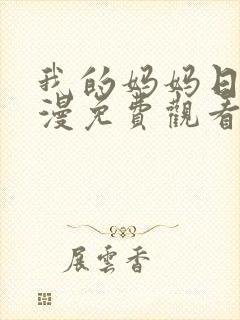 我的妈妈日
漫免費觀看
展雲香